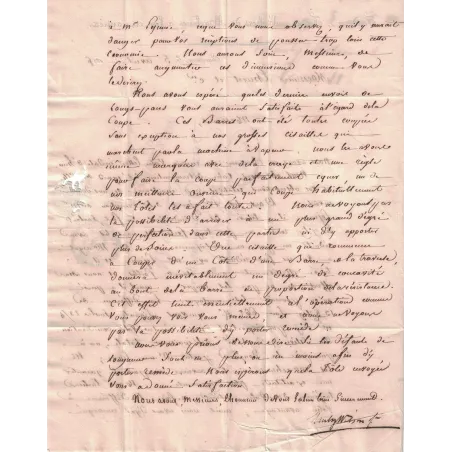 à Mr. que vous nous observez, qu'il y aurait
danger pour vos de pousser trop loin cette
économie. Nous aurons soin, Messieurs, de
faire ces dimensions comme vous
le désirez.
Nous avons espéré que les dernier envois de
vous auraient satisfaits à l'égard de la
Coupe. Ces Barres ont été toutes coupées
sans exception à nos grosses cisailles qui
marchent par la machine à vapeur. nous les avons
même avec de la craie et une règle
pour faire la coupe parfaitement, un de
nos meilleurs ouvriers qui coupe habituellement
nos tôles les a fait toutes. Nous ne voyons pas
la possibilité d'arriver à un plus grand dégré
de perfection dans cette partie ni d'y apporter
plus de soins. Une cisaille qui commence
à couper d'un côté d'une Barre, à la traverse,
donnera inévitablement un dégré de concavité
au bout de la barre en proportion de la résistance.
Cet effet tient essentiellement à l'opération comme
vous pouvez voir vous même, et nous voyons
pas la possibilité d'y porter remède.
nous vous prions de nous dire les défauts de
dont on se plaint plus ou moins afin d'y
porter remède. Nous espérons que la Tôle envoyée
vous a donné satisfaction.
Nous avons, Messieurs, l'honneur de vous saluer bien sincèrement.